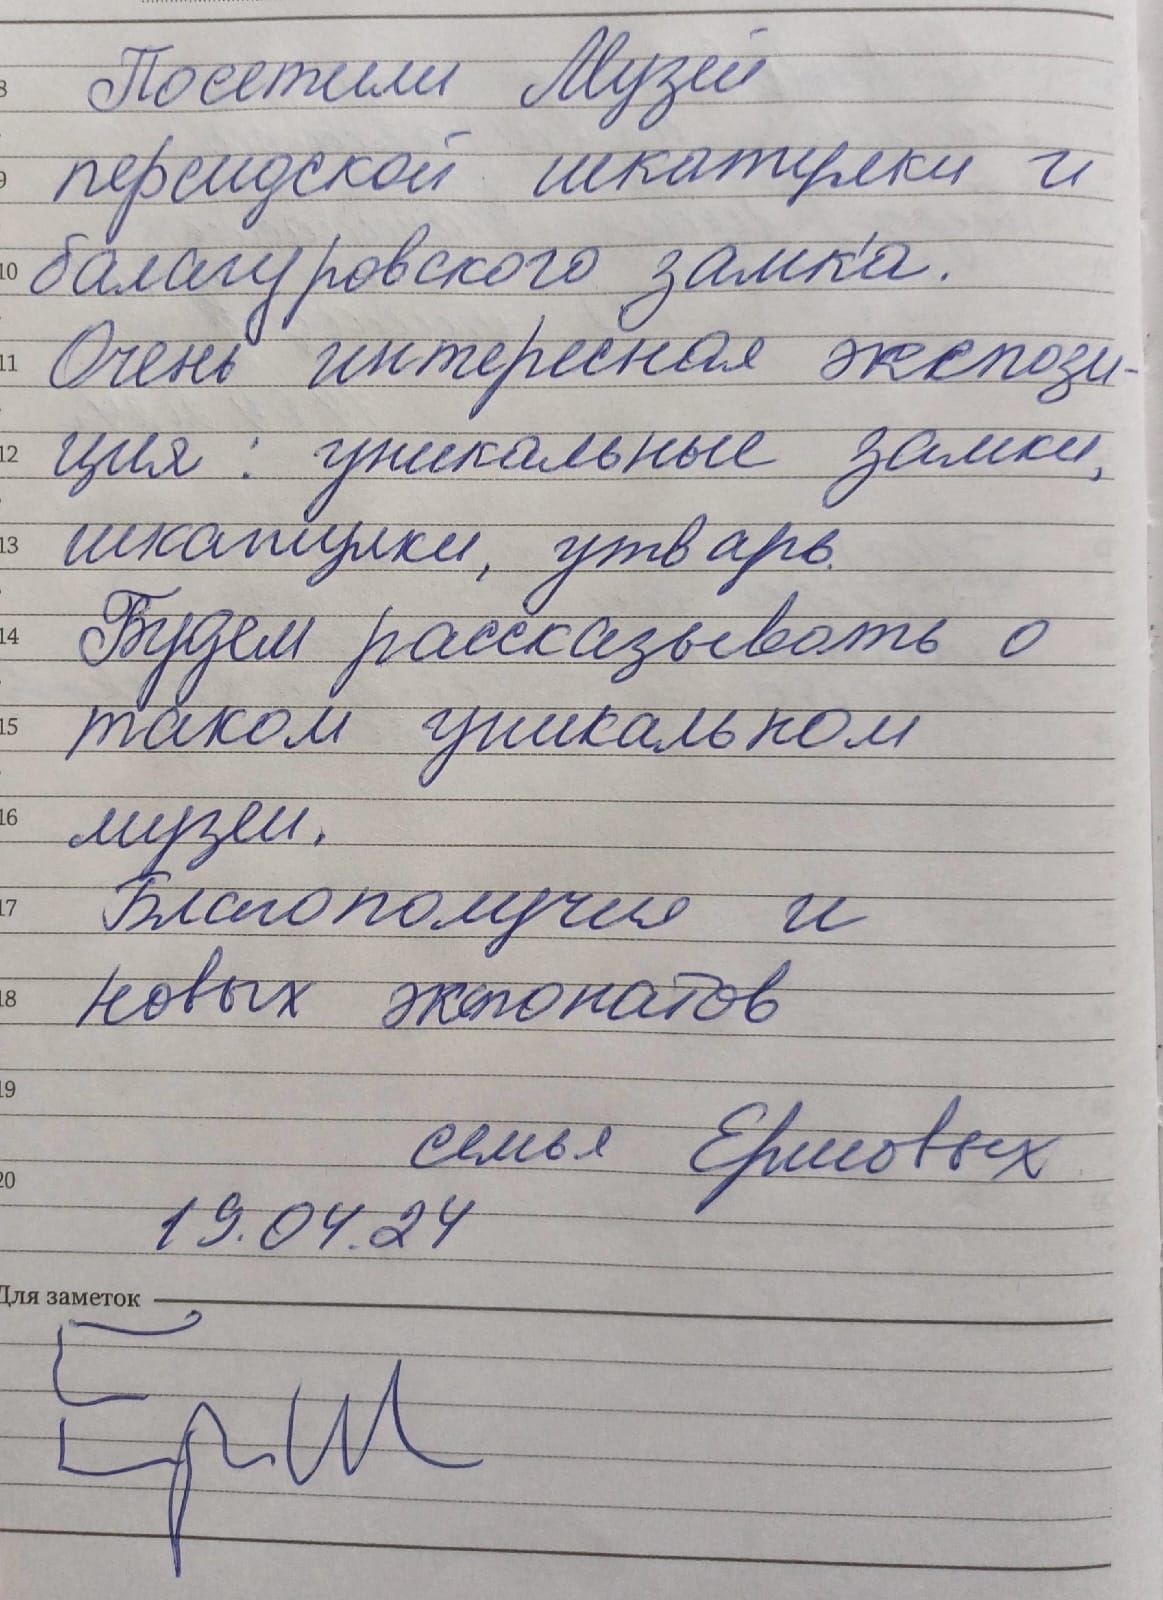 8 Посетили Музей
9 персидской шкатулки и
10 балагуровского замка.
11 Очень интересная экспози-
12 ция: уникальные замки,
13 шкатулки, утварь.
14 Будем рассказывать о
15 таком уникальном
16 музеи.
17 Благополучия и
18 новых экспонатов
19
семья Ершовых
20
19.04.24
Для заметок